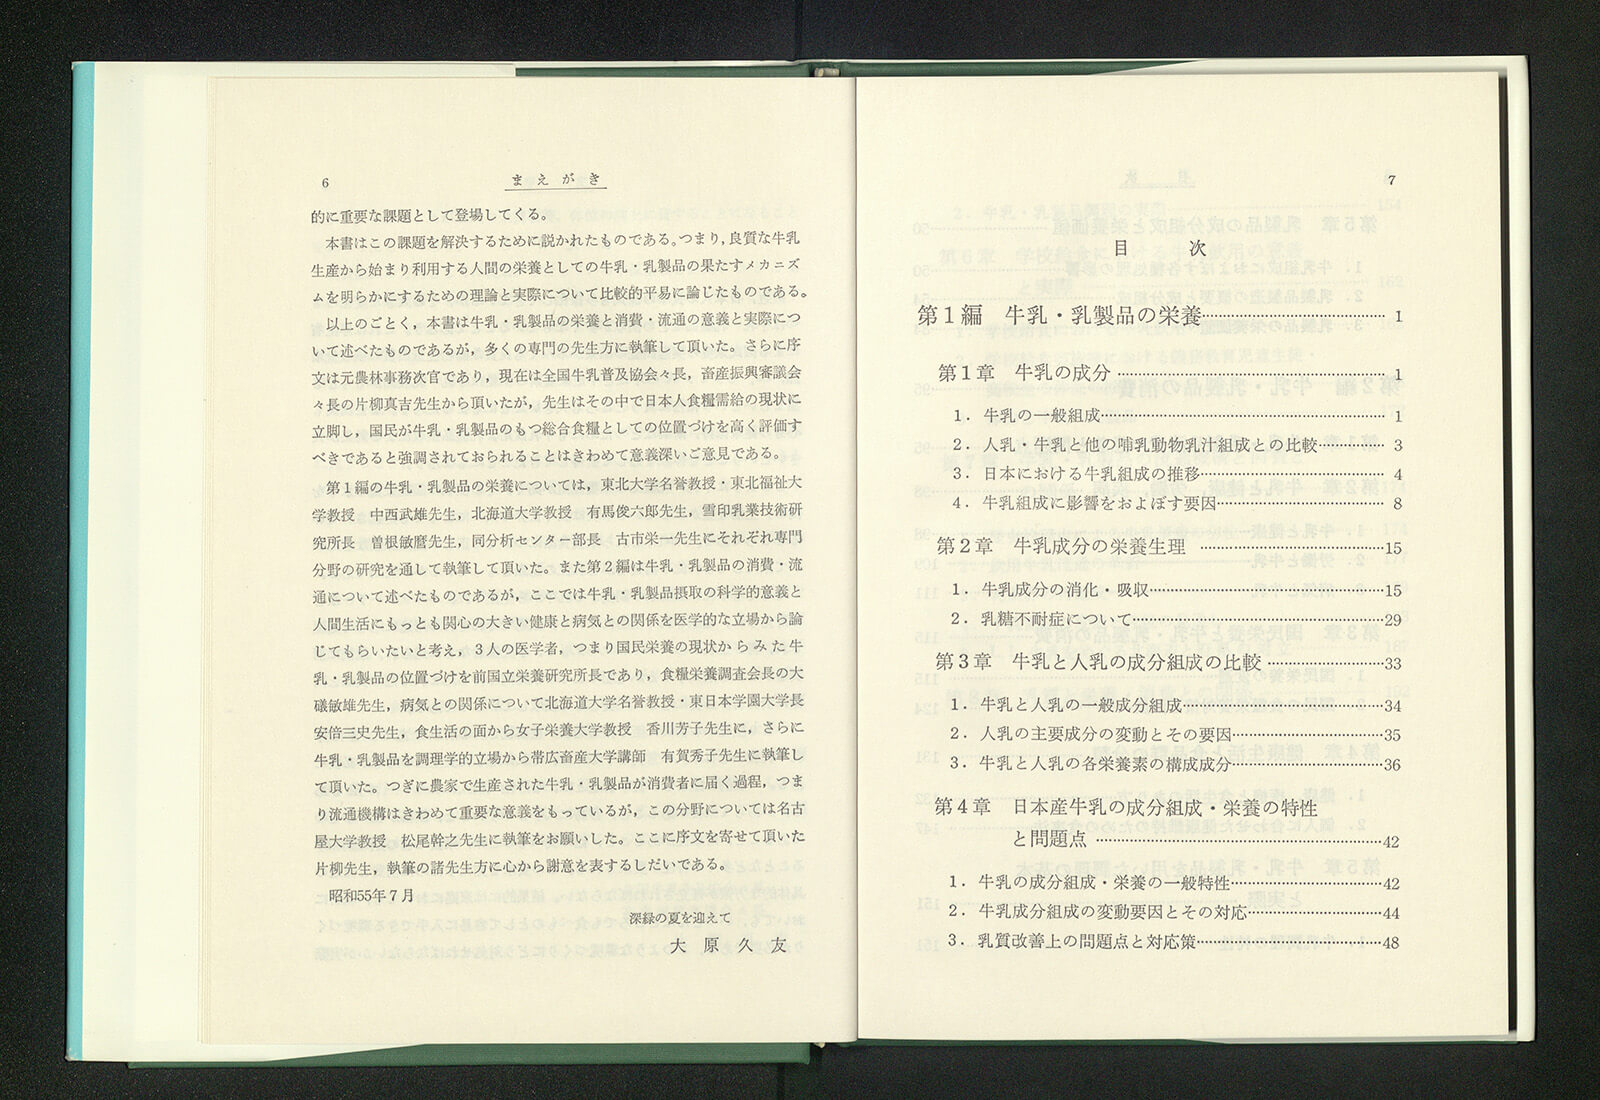 6
まえがき
的に重要な課題として登場してくる。
本書はこの課題を解決するために説かれたものである。つまり，良質な牛乳
生産から始まり利用する人間の栄養としての牛乳・乳製品の果たすメカニズ
ムを明らかにするための理論と実際について比較的平易に論じたものである。
以上のごとく，本書は牛乳・乳製品の栄養と消費・流通の意義と実際につ
いて述べたものであるが，多くの専門の先生方に執筆して頂いた。さらに序
文は元農林事務次官であり，現在は全国牛乳普及協会々長，畜産振興審議会
々長の片柳真吉先生から頂いたが，先生はその中で日本人食糧需給の現状に
立脚し，国民が牛乳・乳製品のもつ総合食糧としての位置づけを高く評価す
べきであると強調されておられることはきわめて意義深いご意見である。
第1編の牛乳・乳製品の栄養については，東北大学名誉教授・東北福祉大
学教授　中西武雄先生，北海道大学教授　有馬俊六郎先生，雪印乳業技術研
究所長　曽根敏麿先生，同分析センター部長　古市栄一先生にそれぞれ専門
分野の研究を通して執筆して頂いた。また第2編は牛乳・乳製品の消費・流
通について述べたものであるが，ここでは牛乳・乳製品摂取の科学的意義と
人間生活にもっとも関心の大きい健康と病気との関係を医学的な立場から論
じてもらいたいと考え，3人の医学者，つまり国民栄養の現状からみた牛
乳・乳製品の位置づけを前国立栄養研究所長であり，食糧栄養調査会長の大
礒敏雄先生，病気との関係について北海道大学名誉教授・東日本学園大学長
安倍三史先生，食生活の面から女子栄養大学教授　香川芳子先生に，さらに
牛乳・乳製品を調理学的立場から帯広畜産大学講師　有賀秀子先生に執筆し
て頂いた。つぎに農家で生産された牛乳・乳製品が消費者に届く過程，つま
り流通機構はきわめて重要な意義をもっているが，この分野については名古
屋大学教授　松尾幹之先生に執筆をお願いした。ここに序文を寄せて頂いた
片柳先生，執筆の諸先生方に心から謝意を表するしだいである。
昭和55年7月
深緑の夏を迎えて
大原久友
7
目　次
第1編　牛乳・乳製品の栄養…………………… 1
第1章　牛乳の成分 …………………… 1
1．牛乳の一般組成…………………… 1
2．人乳・牛乳と他の哺乳動物乳汁組成との比較………… 3
3．日本における牛乳組成の推移…………………… 4
4．牛乳組成に影響をおよぼす要因…………………… 8
第2章　牛乳成分の栄養生理 ……………………15
1．牛乳成分の消化・吸収……………………15
2．乳糖不耐症について……………………29
第3章　牛乳と人乳の成分組成の比較 ……………33
1．牛乳と人乳の一般成分組成……………………34
2．人乳の主要成分の変動とその要因………………35
3．牛乳と人乳の各栄養素の構成成分………………36
第4章　日本産牛乳の成分組成・栄養の特性
と問題点 ……………………42
1．牛乳の成分組成・栄養の一般特性………………42
2．牛乳成分組成の変動要因とその対応……………44
3．乳質改善上の問題点と対応策……………………48